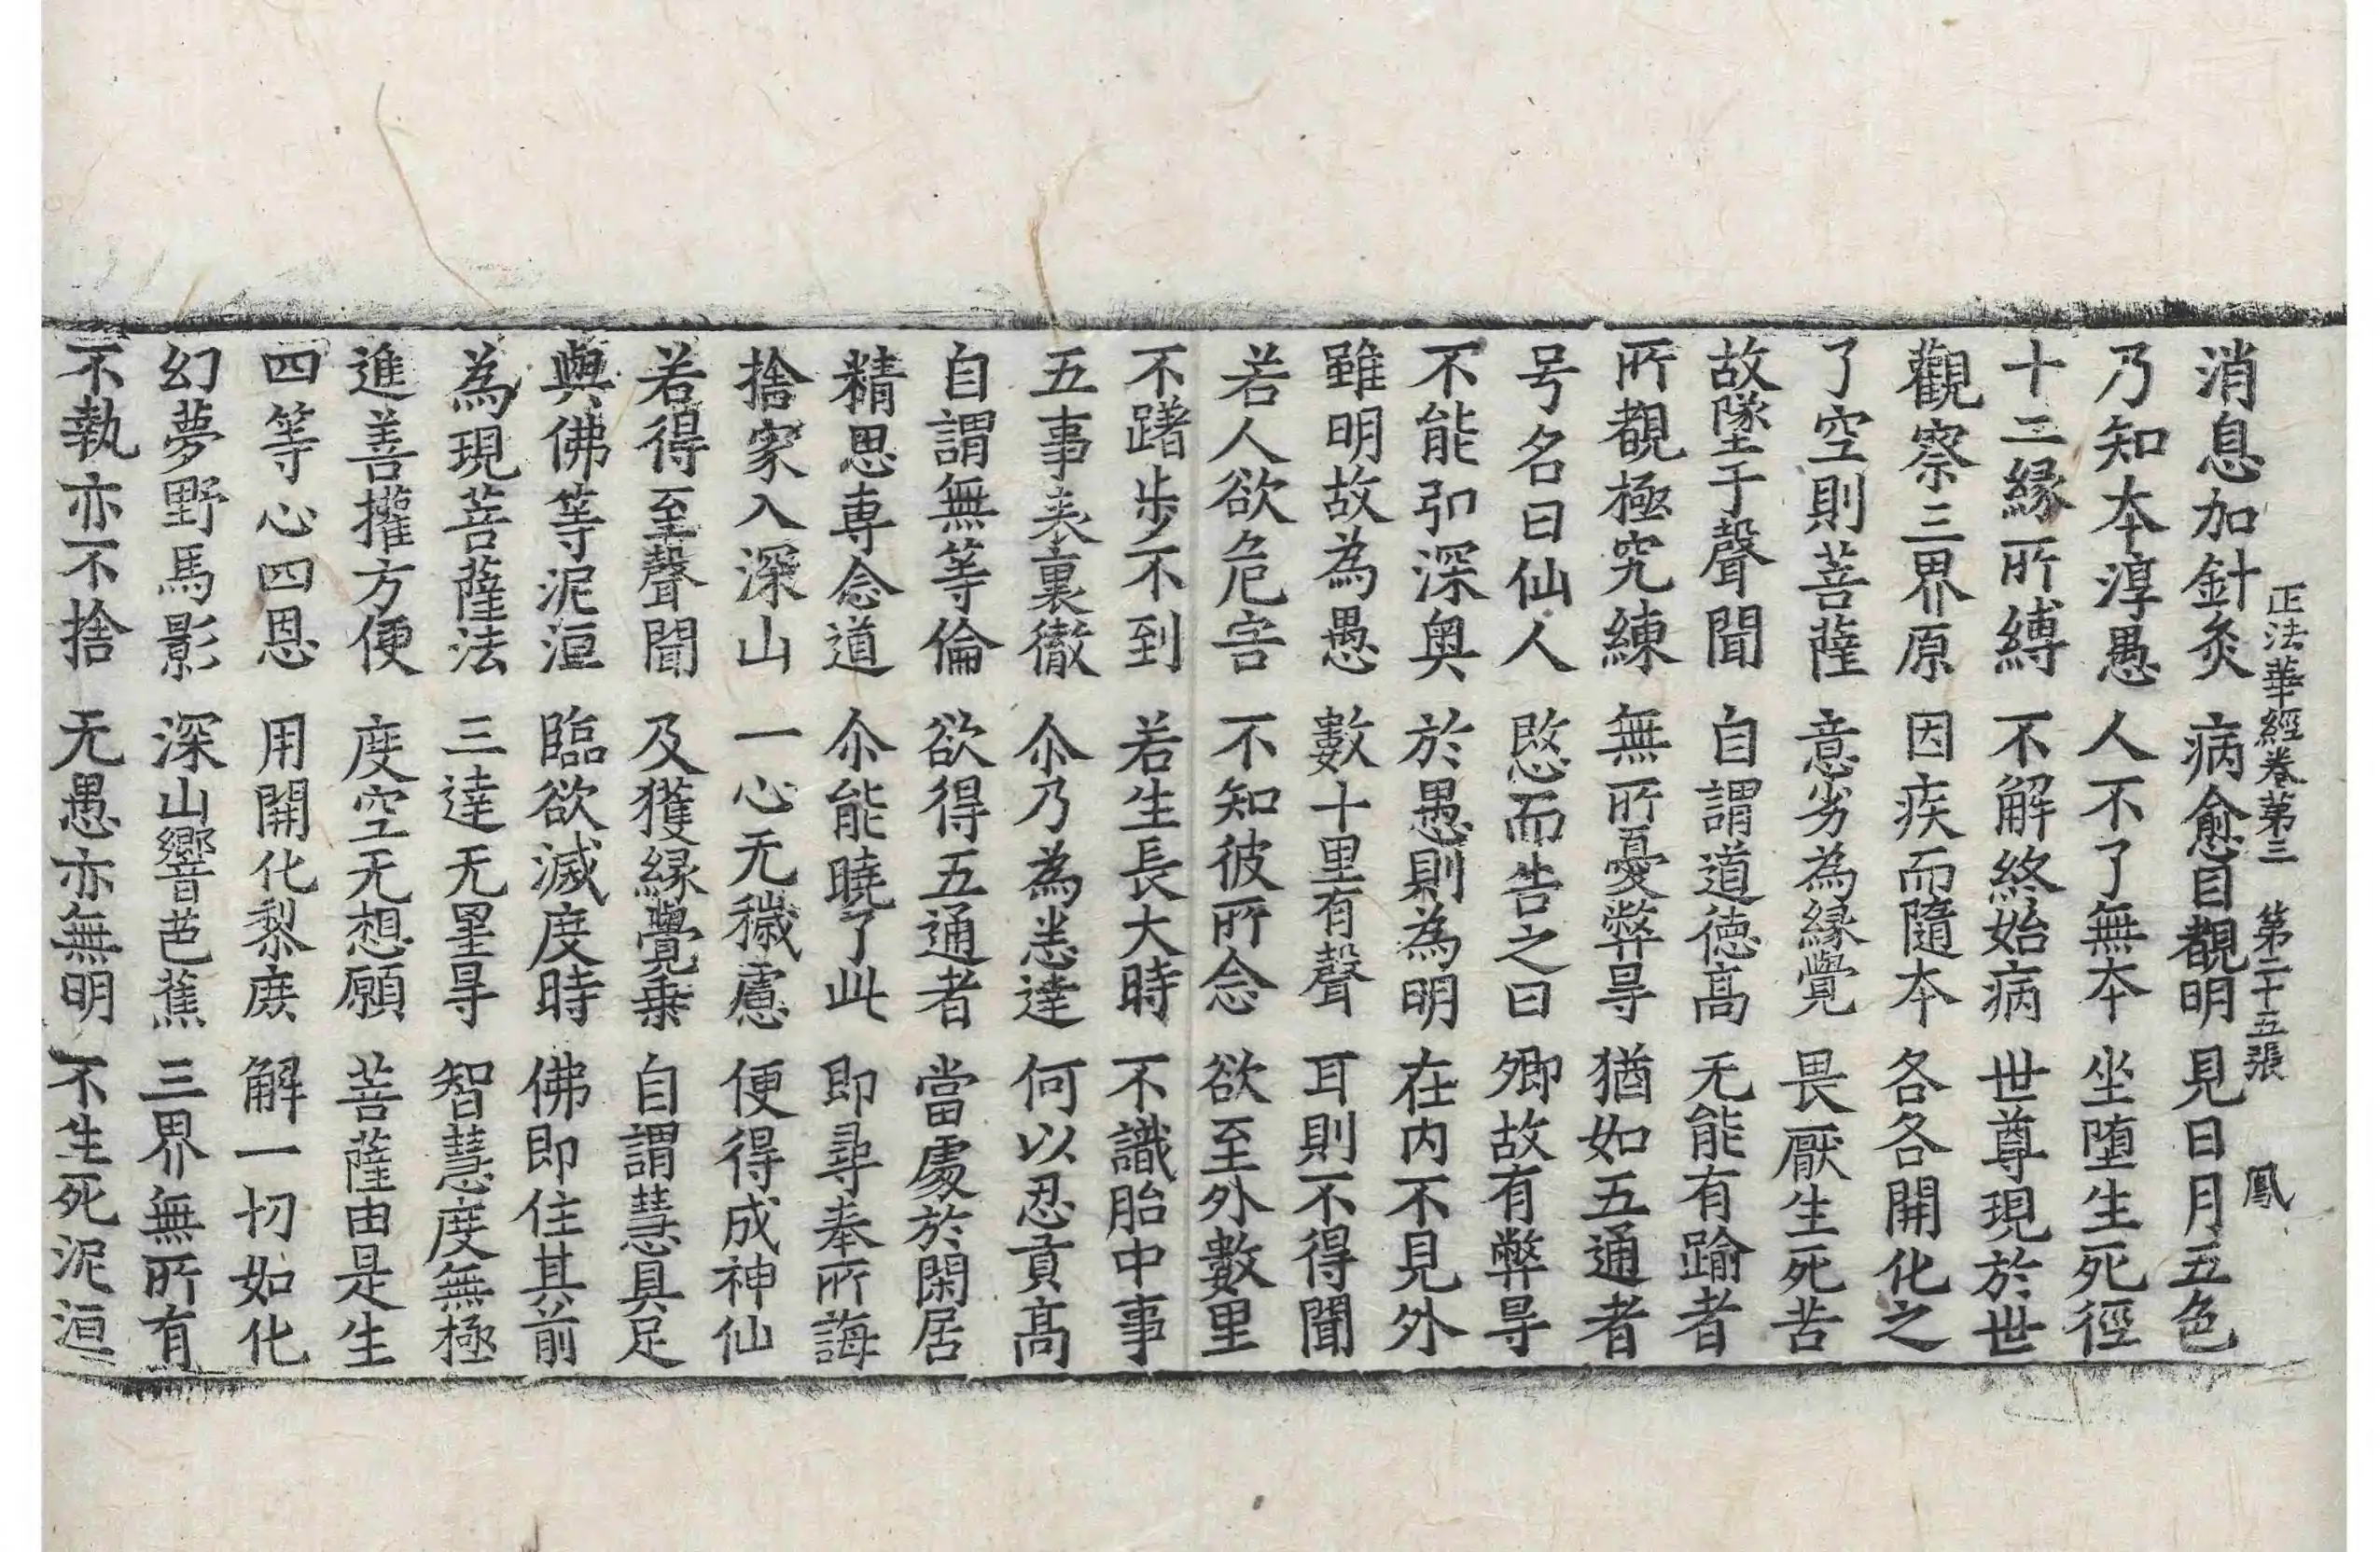 正法華經卷第三　第二十五張　鳳
消息加針灸　病愈目覩明　見日月五色
乃知本淳愚　人不了無本　坐堕生死徑
十二緣所縛　不解終始病　世尊現於世
觀察三界原　因疾而隨本　各各開化之
了空則菩薩　意劣為緣覺　畏厭生死苦
故墜于聲聞　自謂道德髙　无能有踰者
所覩極究練　無所憂弊㝵　猶如五通者
号名曰仙人　愍而告之曰　卿故有弊㝵
不能引深奥　於愚則為明　在内不見外
雖明故為愚　數十里有聲　耳則不得聞
若人欲危害　不知彼所念　欲至外數里
不躇步不到　若生長大時　不識胎中事
五事表裏徹　尒乃為悉達　何以忍貢髙
自謂無等倫　欲得五通者　當處於閑居
精思專念道　尒能曉了此　即尋奉所誨
捨家入深山　一心无穢慮　便得成神仙
若得至聲聞　及獲緣覺乗　自謂慧具足
與佛等泥洹　臨欲滅度時　佛即住其前
為現菩薩法　三達无罣㝵　智慧度無極
進善權方便　度空无想願　菩薩由是生
四等心四恩　用開化黎庶　解一切如化
幻夢野馬影　深山響芭蕉　三界無所有
不執亦不捨　无愚亦無明　不生死泥洹